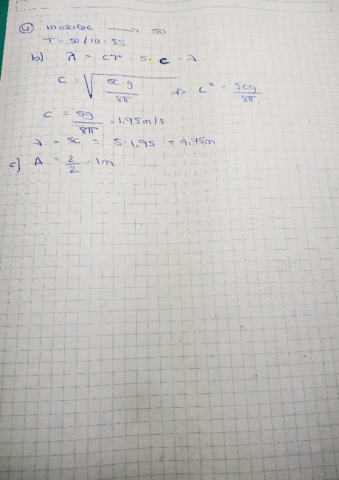 4) 10 osciloc → 50
T = 50/10 = 5s
b) λ = CT = 5 · c = λ
c = √(5c·g/8π) → c² = 5cg/8π
c = 5g/8π = 1.95 m/s
λ = 5c = 5·1.95 = 9.75m
c) A = 2/2 = 1m